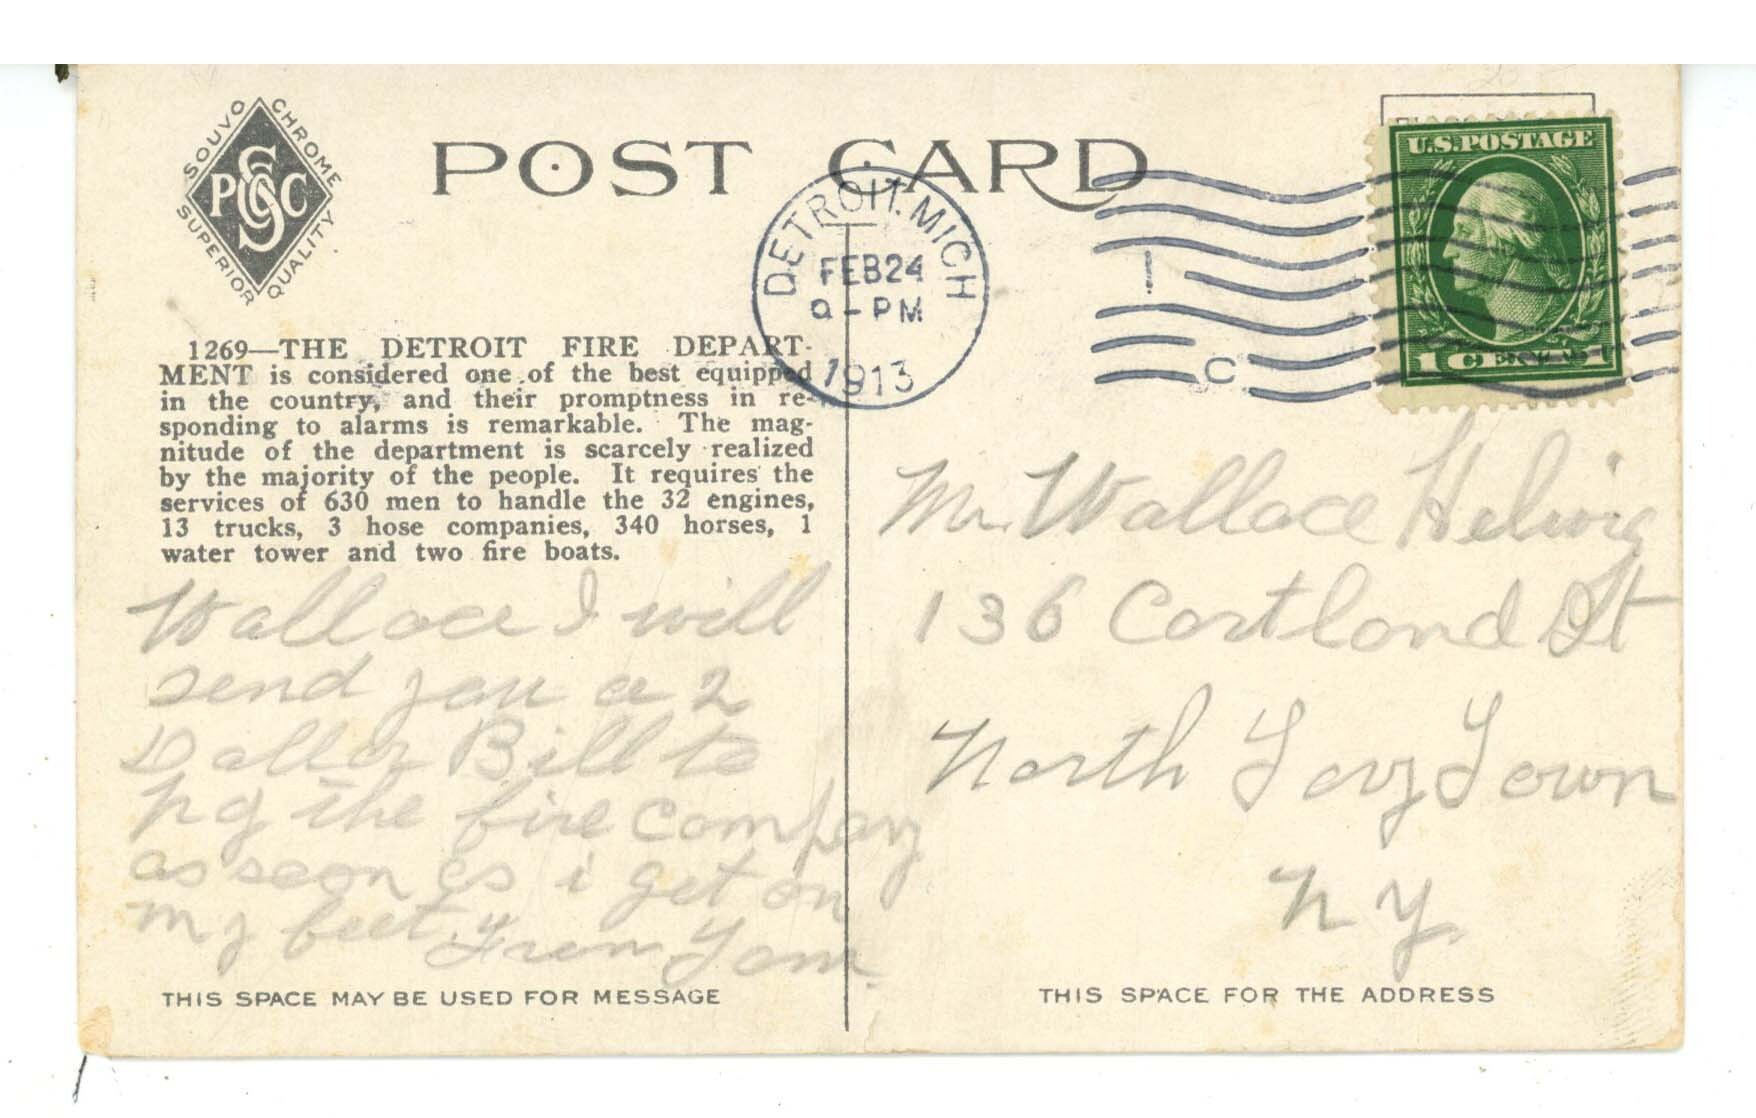 SOUVO CHROME
P S C C
SUPERIOR QUALITY
POST CARD
U.S. POSTAGE
1 CENT 1
DETROIT, MICH
FEB 24
9 - PM
1913
C
1269—THE DETROIT FIRE DEPART-
MENT is considered one of the best equipped
in the country, and their promptness in re-
sponding to alarms is remarkable. The mag-
nitude of the department is scarcely realized
by the majority of the people. It requires the
services of 630 men to handle the 32 engines,
13 trucks, 3 hose companies, 340 horses, 1
water tower and two fire boats.
Wallace I will
send you a 2
Dollar Bill to
the fire Company
as soon as i get on
my feet. From Tom.
Mr. Wallace Helwig
136 Cortland St
North Town
N Y.
THIS SPACE MAY BE USED FOR MESSAGE
THIS SPACE FOR THE ADDRESS